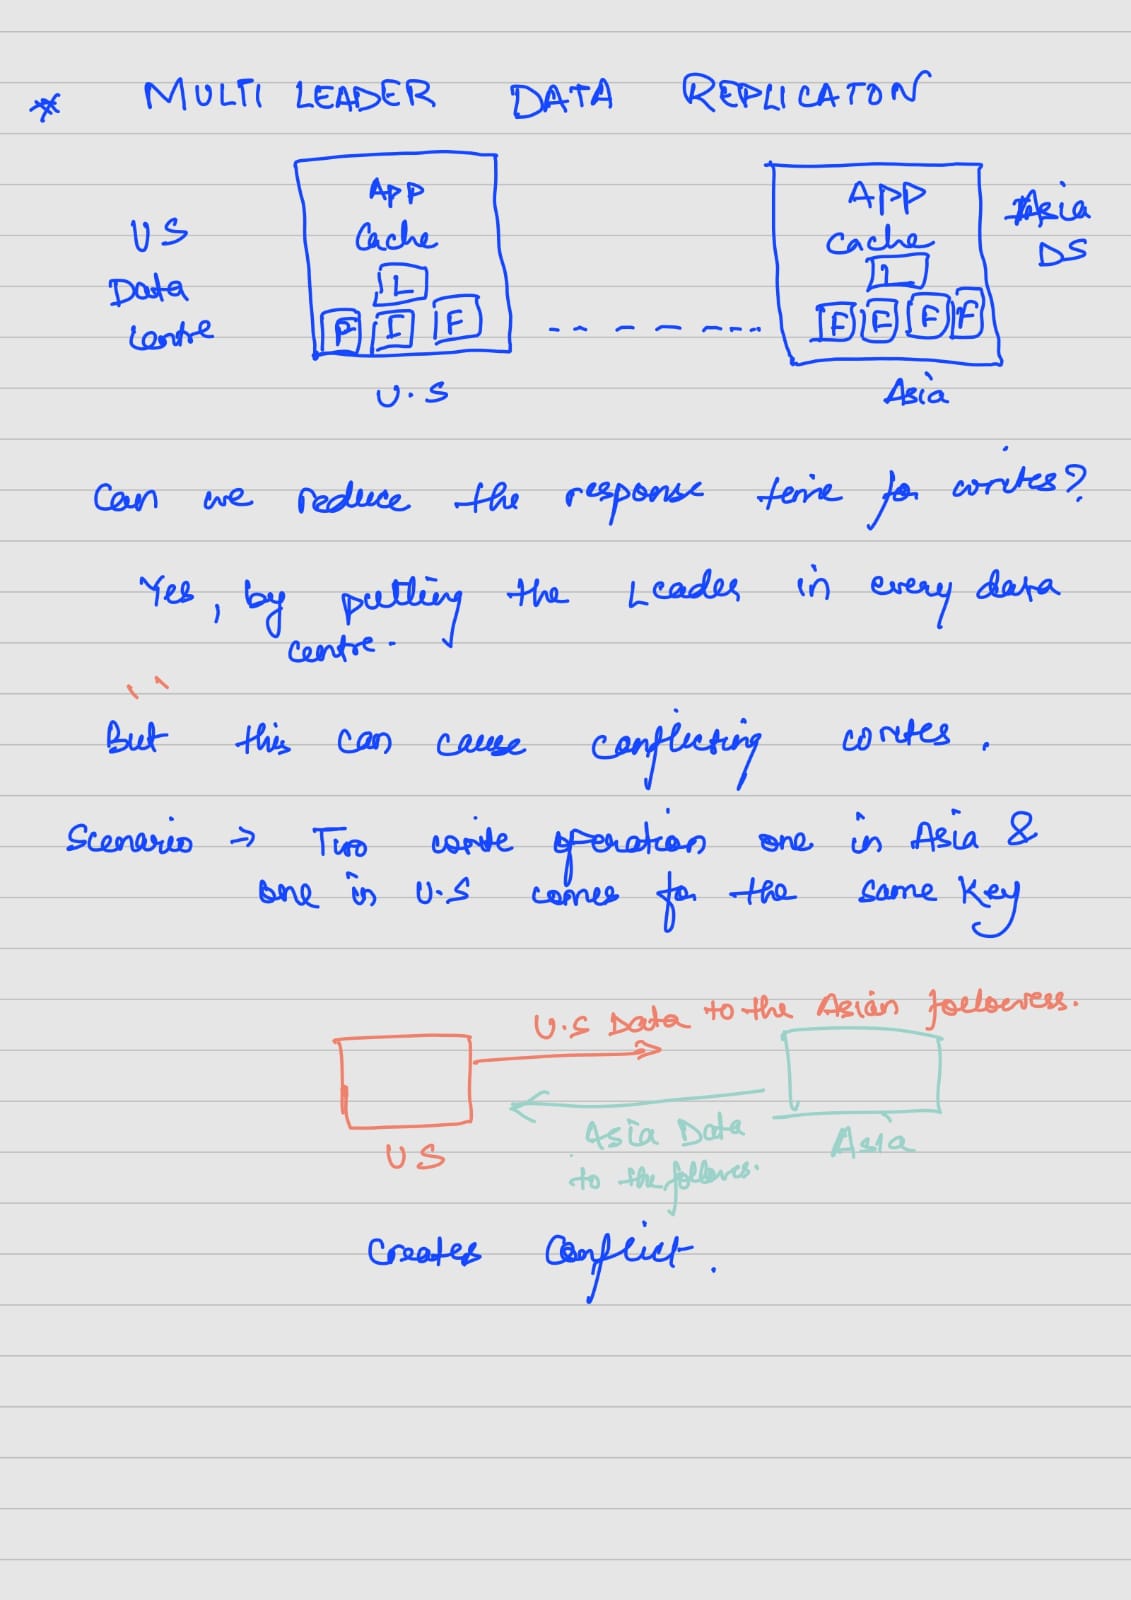 * MULTI LEADER DATA REPLICATON
App
Cache
L
F F F
U.S
US
Data
centre
App
Cache
L
F F F F
Asia
Asia
DS
Can we reduce the response time for writes?
Yes, by putting the Leader in every data
centre.
But this can cause conflicting writes.
Scenario → Two write operation one in Asia &
one in U.S comes for the same Key
U.S Data to the Asian followers.
US
Asia Data
to the followers.
Asia
Creates Conflict.